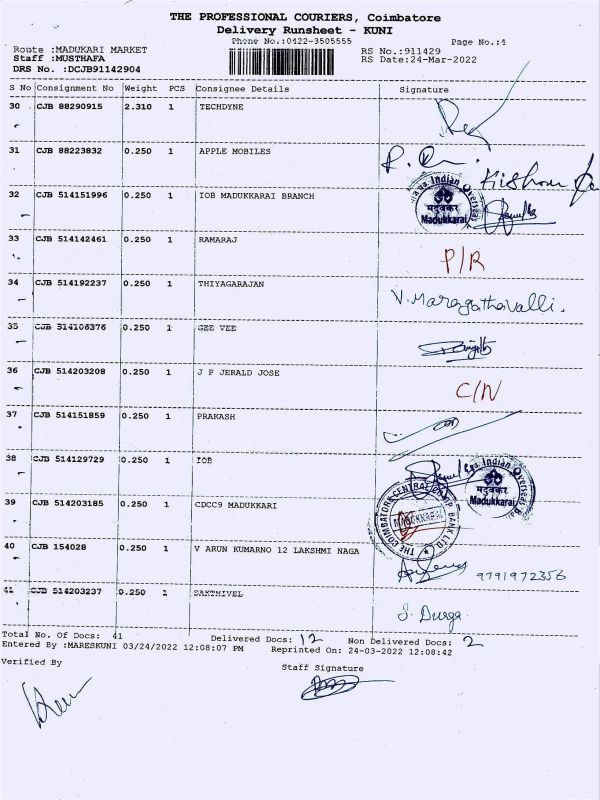 THE PROFESSIONAL COURIERS, Coimbatore
Delivery Runsheet - KUNI
Phone No.:0422-3505555 Page No.:4
Route :MADUKARI MARKET RS No.:911429
Staff :MUSTHAFA RS Date:24-Mar-2022
DRS No. :DCJB91142904
S No Consignment No Weight PCS Consignee Details Signature
30 CJB 88290915 2.310 1 TECHDYNE
31 CJB 88223832 0.250 1 APPLE MOBILES
32 CJB 514151996 0.250 1 IOB MADUKKARAI BRANCH
Indian Overseas
मदुक्कर
Madukkarai
33 CJB 514142461 0.250 1 RAMARAJ P/R
34 CJB 514192237 0.250 1 THIYAGARAJAN V. Maragathavalli.
35 CJB 514106376 0.250 1 GEE VEE
36 CJB 514203208 0.250 1 J P JERALD JOSE C/N
37 CJB 514151859 0.250 1 PRAKASH
38 CJB 514129729 0.250 1 IOB
Indian Overseas
मदुक्कर
Madukkarai
39 CJB 514203185 0.250 1 CDCC9 MADUKKARI
THE COIMBATORE CENTRAL BANK LTD
MADUKKARAI
40 CJB 154028 0.250 1 V ARUN KUMARNO 12 LAKSHMI NAGA 9791972356
41 CJB 514203237 0.250 1 SAKTHIVEL S. Durga
Total No. Of Docs: 41 Delivered Docs: 12 Non Delivered Docs: 2
Entered By :MARESKUNI 03/24/2022 12:08:07 PM Reprinted On: 24-03-2022 12:08:42
Verified By Staff Signature